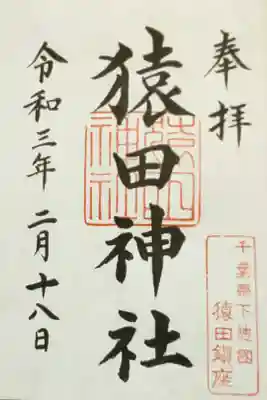 奉拝
千葉県下総國
猿田鎮座
猿田神社
令和三年 二月十八日